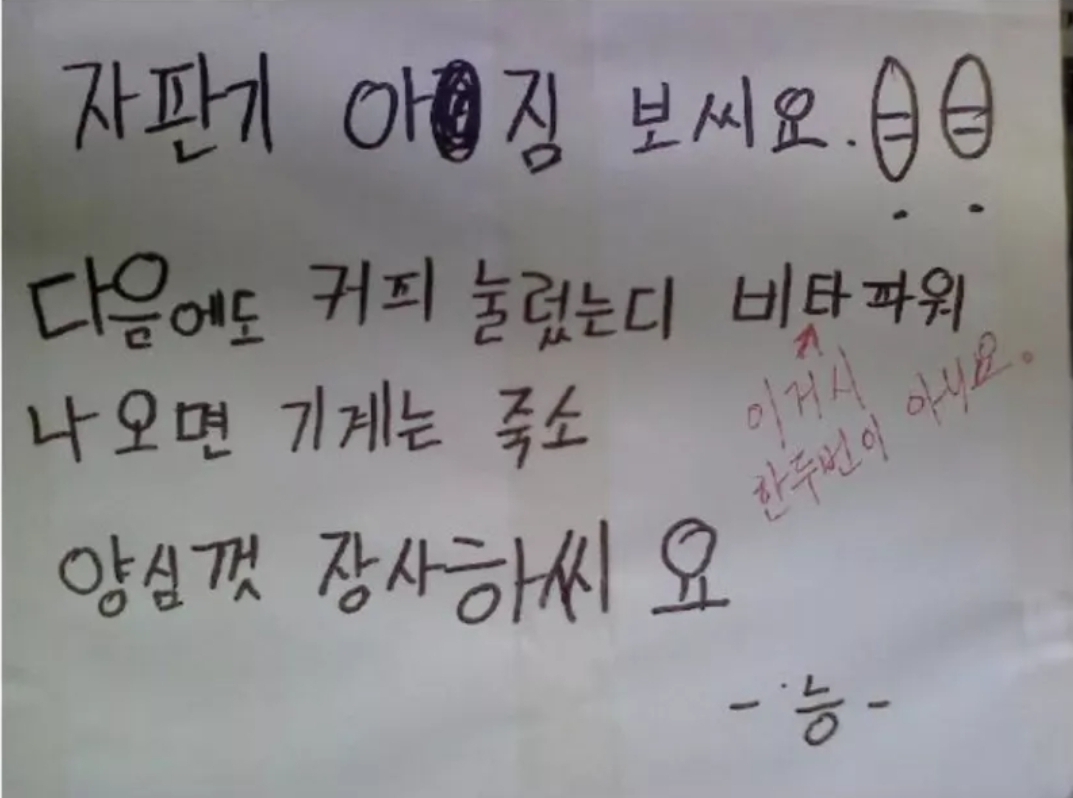 자판기 아짐 보씨요.!!
다음에도 커피 눌렀는디 비타파워
나오면 기계는 죽소
이거시
한두번이 아니요.
양심껏 장사하씨요
-능-